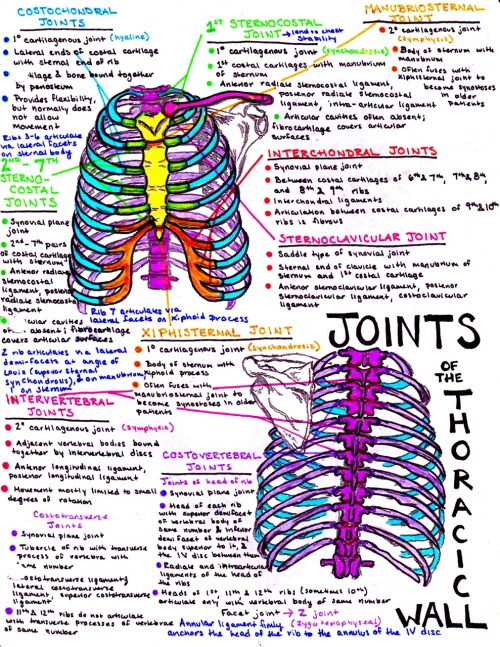 COSTOCHONDRAL
JOINTS
1° cartilagenous joint (hyaline)
Lateral ends of costal cartilage
with sternal end of rib
tilage & bone bound together
by periosteum
Provides flexibility,
normally does
not allow
movement
Ribs 3-6 articulate
via lateral facets
on sternal body
2ND - 7TH
STERNO-
COSTAL
JOINTS
Synovial plane
joint
2nd-7th pairs
of costal cartilage
with sternum
Anterior radiate
sternocostal
ligament, posterior
radiate sternocostal
ligament
cular cavities
absent; fibrocartilage
covers articular surfaces
2 rib articulates via lateral
demi-facets at angle of
Louis (superior sternal
synchondrosis), on manubrium,
1 on sternum
1ST STERNOCOSTAL
JOINT → lends to chest
stability
1° cartilagenous joint (synchondrosis)
1st costal cartilages with manubrium
of sternum
Anterior radiate sternocostal ligament,
posterior radiate sternocostal
ligament, intra-articular ligament
Articular cavities often absent;
fibrocartilage covers articular
surfaces
MANUBRIOSTERNAL
JOINT
2° cartilagenous joint
(symphysis)
Body of sternum with
manubrium
Often fuses with
xiphisternal joint to
become synostoses
in older
patients
INTERCHONDRAL JOINTS
Synovial plane joint
Between costal cartilages of 6th & 7th, 7th & 8th,
and 8th & 9th ribs
Interchondral ligaments
Articulation between costal cartilages of 9th & 10th
ribs is fibrous
STERNOCLAVICULAR JOINT
Saddle type of synovial joint
Sternal end of clavicle with manubrium of
sternum and 1st costal cartilage
Anterior sternoclavicular ligament, posterior
sternoclavicular ligament, costoclavicular
ligament
Rib 7 articulates via
lateral facets on xiphoid process
XIPHISTERNAL JOINT
1° cartilagenous joint (synchondrosis)
Body of sternum with
xiphoid process
Often fuses with
manubriosternal joint to
become synostoses in older
patients
JOINTS
OF THE
THORACIC
WALL
INTERVERTEBRAL
JOINTS
2° cartilagenous joint (symphysis)
Adjacent vertebral bodies bound
together by intervertebral discs
Anterior longitudinal ligament,
posterior longitudinal ligament
Movement mostly limited to small
degrees of rotation
Costotransverse
Joints
Synovial plane joint
Tubercle of rib with transverse
process of vertebra with
same number
costotransverse ligament,
lateral costotransverse
ligament, superior costotransverse
ligament
11th & 12th ribs do not articulate
with transverse processes of vertebrae
of same number
COSTOVERTEBRAL
JOINTS
Joints of head of rib
Synovial plane joint
Head of each rib
with superior demifacet
of vertebral body of
same number & inferior
demifacet of vertebral
body superior to it, &
the IV disc between them
Radiate and intraarticular
ligaments of the head of
the ribs
Heads of 1st, 11th & 12th ribs (sometimes 10th)
articulate only with vertebral body of same number
Facet joint → Z joint
(zygotapophyseal)
Annular ligament firmly
anchors the head of the rib to the annulus of the IV disc